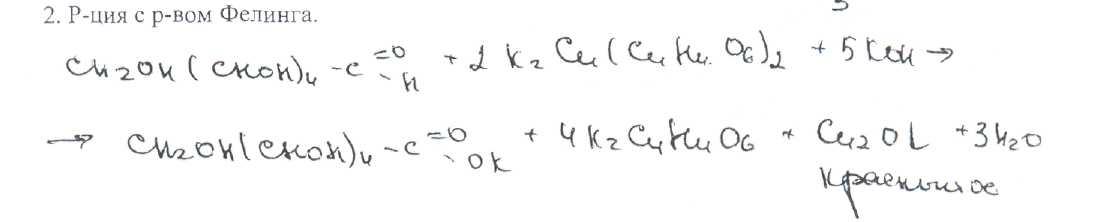 2. Р-ция с р-вом Фелинга.
CH2OH(CHOH)4-C=O-H + 2 K2Cu(C4H4O6)2 + 5KOH →
→ CH2OH(CHOH)4-C=O-OK + 4K2C4H4O6 + Cu2O↓ + 3H2O
красный ос